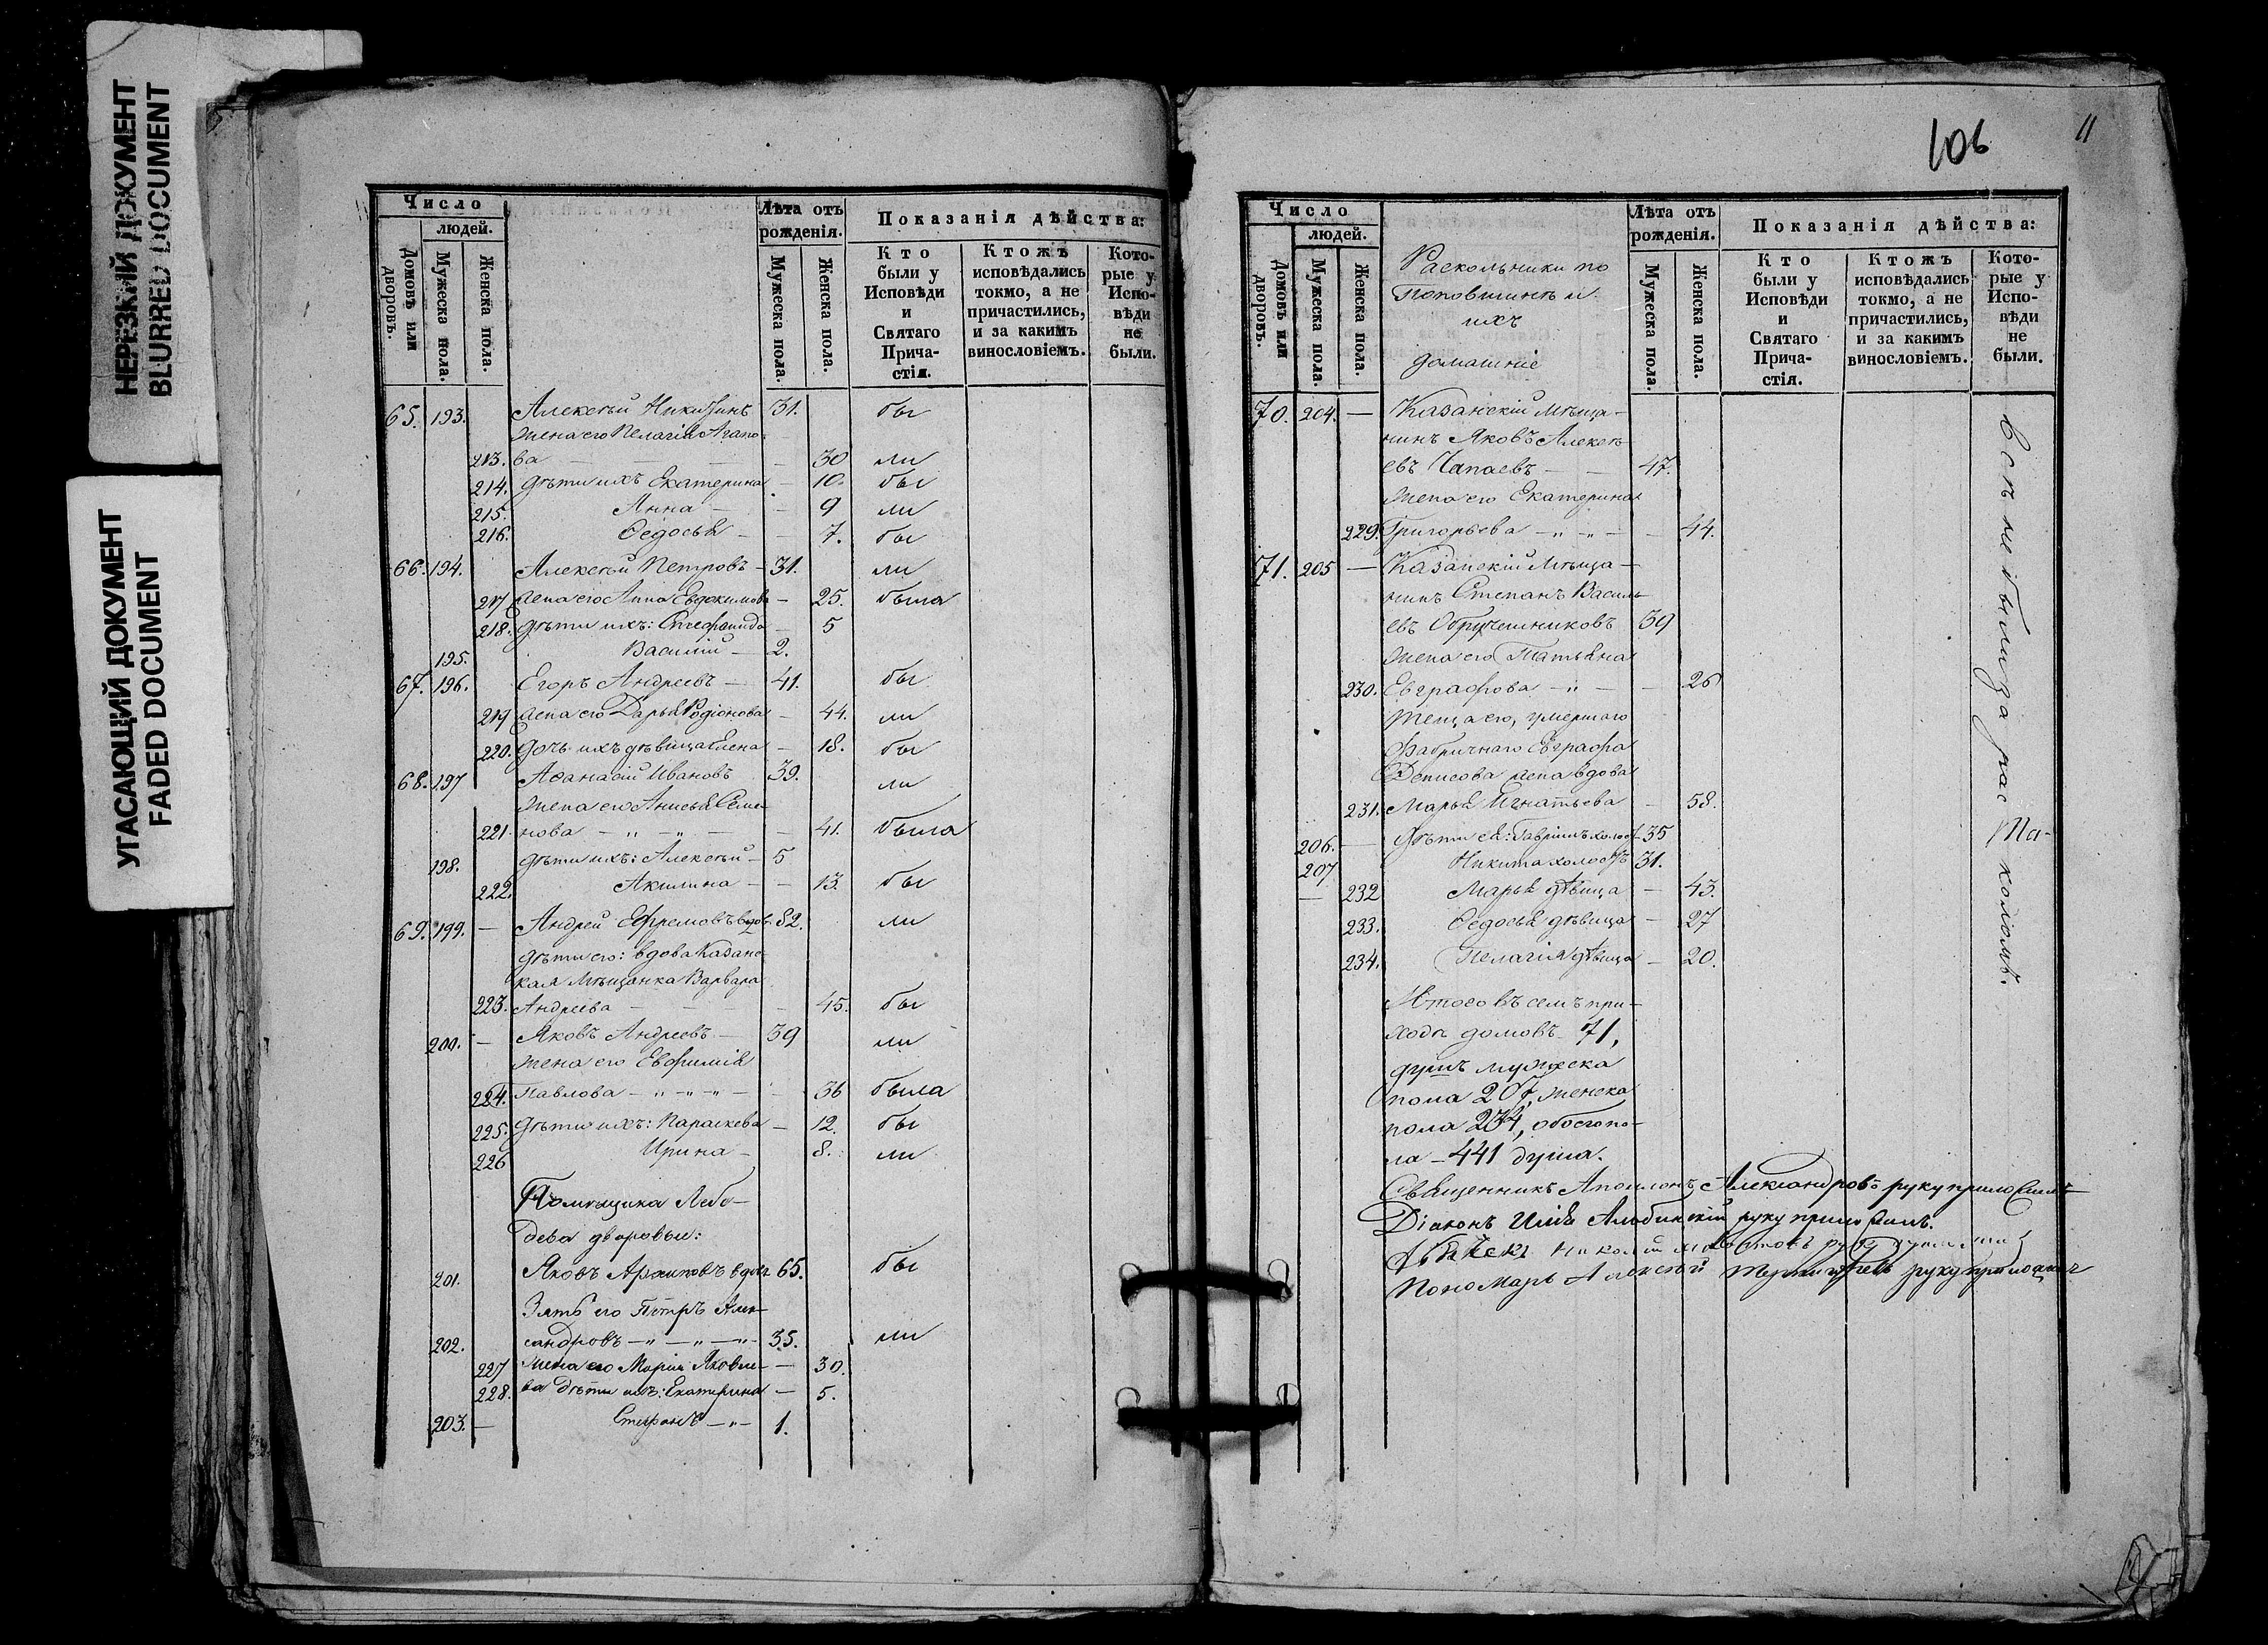 НЕРЕЗКИЙ ДОКУМЕНТ
BLURRED DOCUMENT
УГАСАЮЩИЙ ДОКУМЕНТ
FADED DOCUMENT
Число
людей.
Домовъ или дворовъ.
Мужеска пола.
Женска пола.
Лѣта отъ рожденія.
Мужеска пола.
Женска пола.
Показанія дѣйства:
Кто были у Исповѣди и Святаго Прича-стія.
Ктожъ исповѣдались токмо, а не причастились, и за какимъ винословіемъ.
Кото-рые у Испо-вѣди не были.
65. 193. Алексѣй Никитинъ 31. бы
жена его Пелагія Агапо-
213. ва — — — — 30 ли
214. дѣти ихъ Екатерина — 10. бы
215. Анна — — 9 ли
216. Ѳедосья — — 7. бы
66. 194. Алексѣй Петровъ — 31. ли
217 жена его Анна Евдокимова — 25. была
218. дѣти ихъ: Стефанида — 5
195. Василій — 2.
67. 196. Егоръ Андреевъ — 41. бы
219 жена его Дарья Родіонова — 44. ли
220. дочь ихъ дѣвица Елена — 18. бы
68. 197 Аѳанасій Ивановъ 39. ли
жена его Анисья Семе-
221. нова — „ — „ — — 41. была
198. дѣти ихъ: Алексѣй — 5
222. Акилина — — 13. бы
69. 199. — Андрей Ефремовъ вдов. 82. ли
дѣти его: вдова Казанс-
кая мѣщанка Варвара
223. Андреева — — — — 45. бы
200. — Яковъ Андреевъ — 39 ли
жена его Евфимія
224. Павлова — „ — „ — „ — — 36 была
225. дѣти ихъ: Параскева — 12. бы
226 Ирина — 8. ли
Помѣщика Лебе-
дева дворовыи:
201. Яковъ Архиповъ вдовъ 65. бы
Зять его Петръ Алек-
202. сандровъ — „ — „ — „ — 35. ли
227 жена его Марія Яковле- — 30.
228. ва дѣти ихъ: Екатерина — 5.
203. — Стефанъ — „ — 1.
106
11
Число
людей.
Домовъ или дворовъ.
Мужеска пола.
Женска пола.
Раскольники по
Поповщинѣ и
ихъ
домашніе
Лѣта отъ рожденія.
Мужеска пола.
Женска пола.
Показанія дѣйства:
Кто были у Исповѣди и Святаго Прича-стія.
Ктожъ исповѣдались токмо, а не причастились, и за какимъ винословіемъ.
Кото-рые у Испо-вѣди не были.
70. 204. — Казанскій мѣща-
нинъ Яковъ Алексѣ-
евъ Чапаевъ — — 47.
жена его Екатерина
229. Григорьева — „ — „ — — 44.
71. 205 — Казанскій мѣща-
нинъ Степанъ Василь-
евъ Обручешниковъ 39
жена его Татьяна
230. Евграфова — „ — — 26
теща его, умершаго
фабричнаго Евграфа
Денисова жена вдова
231. Марья Игнатьева — 58.
206. — дѣти ея: Гавріилъ холост. 35
207 Никита холостъ 31.
— 232 Марья дѣвица — 43.
233. Ѳедосья дѣвица — 27
234. Пелагія дѣвица — 20.
Всѣ не были за рас
кольомъ.
Итого въ семъ при-
ходѣ домовъ 71,
душъ мужеска
пола 207, женска
пола 234, обоего по-
ла — 441 душа.
Священникъ Аполлонъ Александровъ руку приложилъ
Діаконъ Илія Альбинскій руку приложилъ.
Дьячекъ Николай руку
Пономарь Алексѣй руку приложилъ